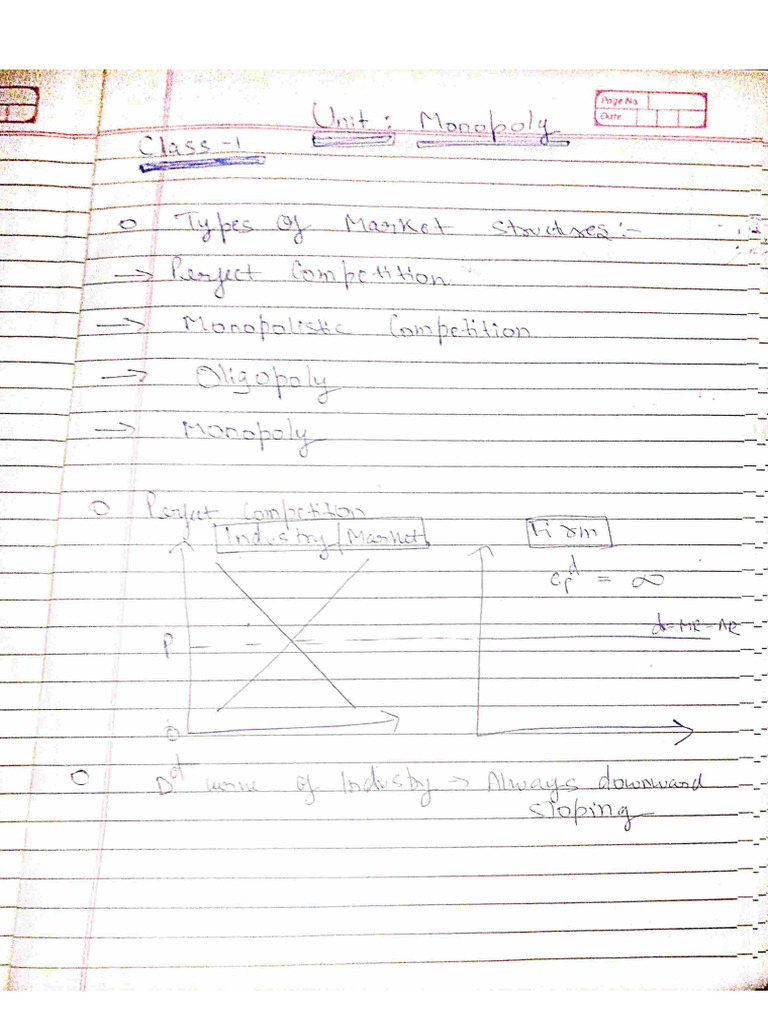 Page No.
Date
Unit : Monopoly
Class-1
o Types Of Market Structures:-
→ Perfect Competition
→ Monopolistic Competition
→ Oligopoly
→ Monopoly
o Perfect Competition
Industry/Market
Firm
epd = ∞
d=MR=AR
P
O
o Dd curve of Industry → Always downward
sloping